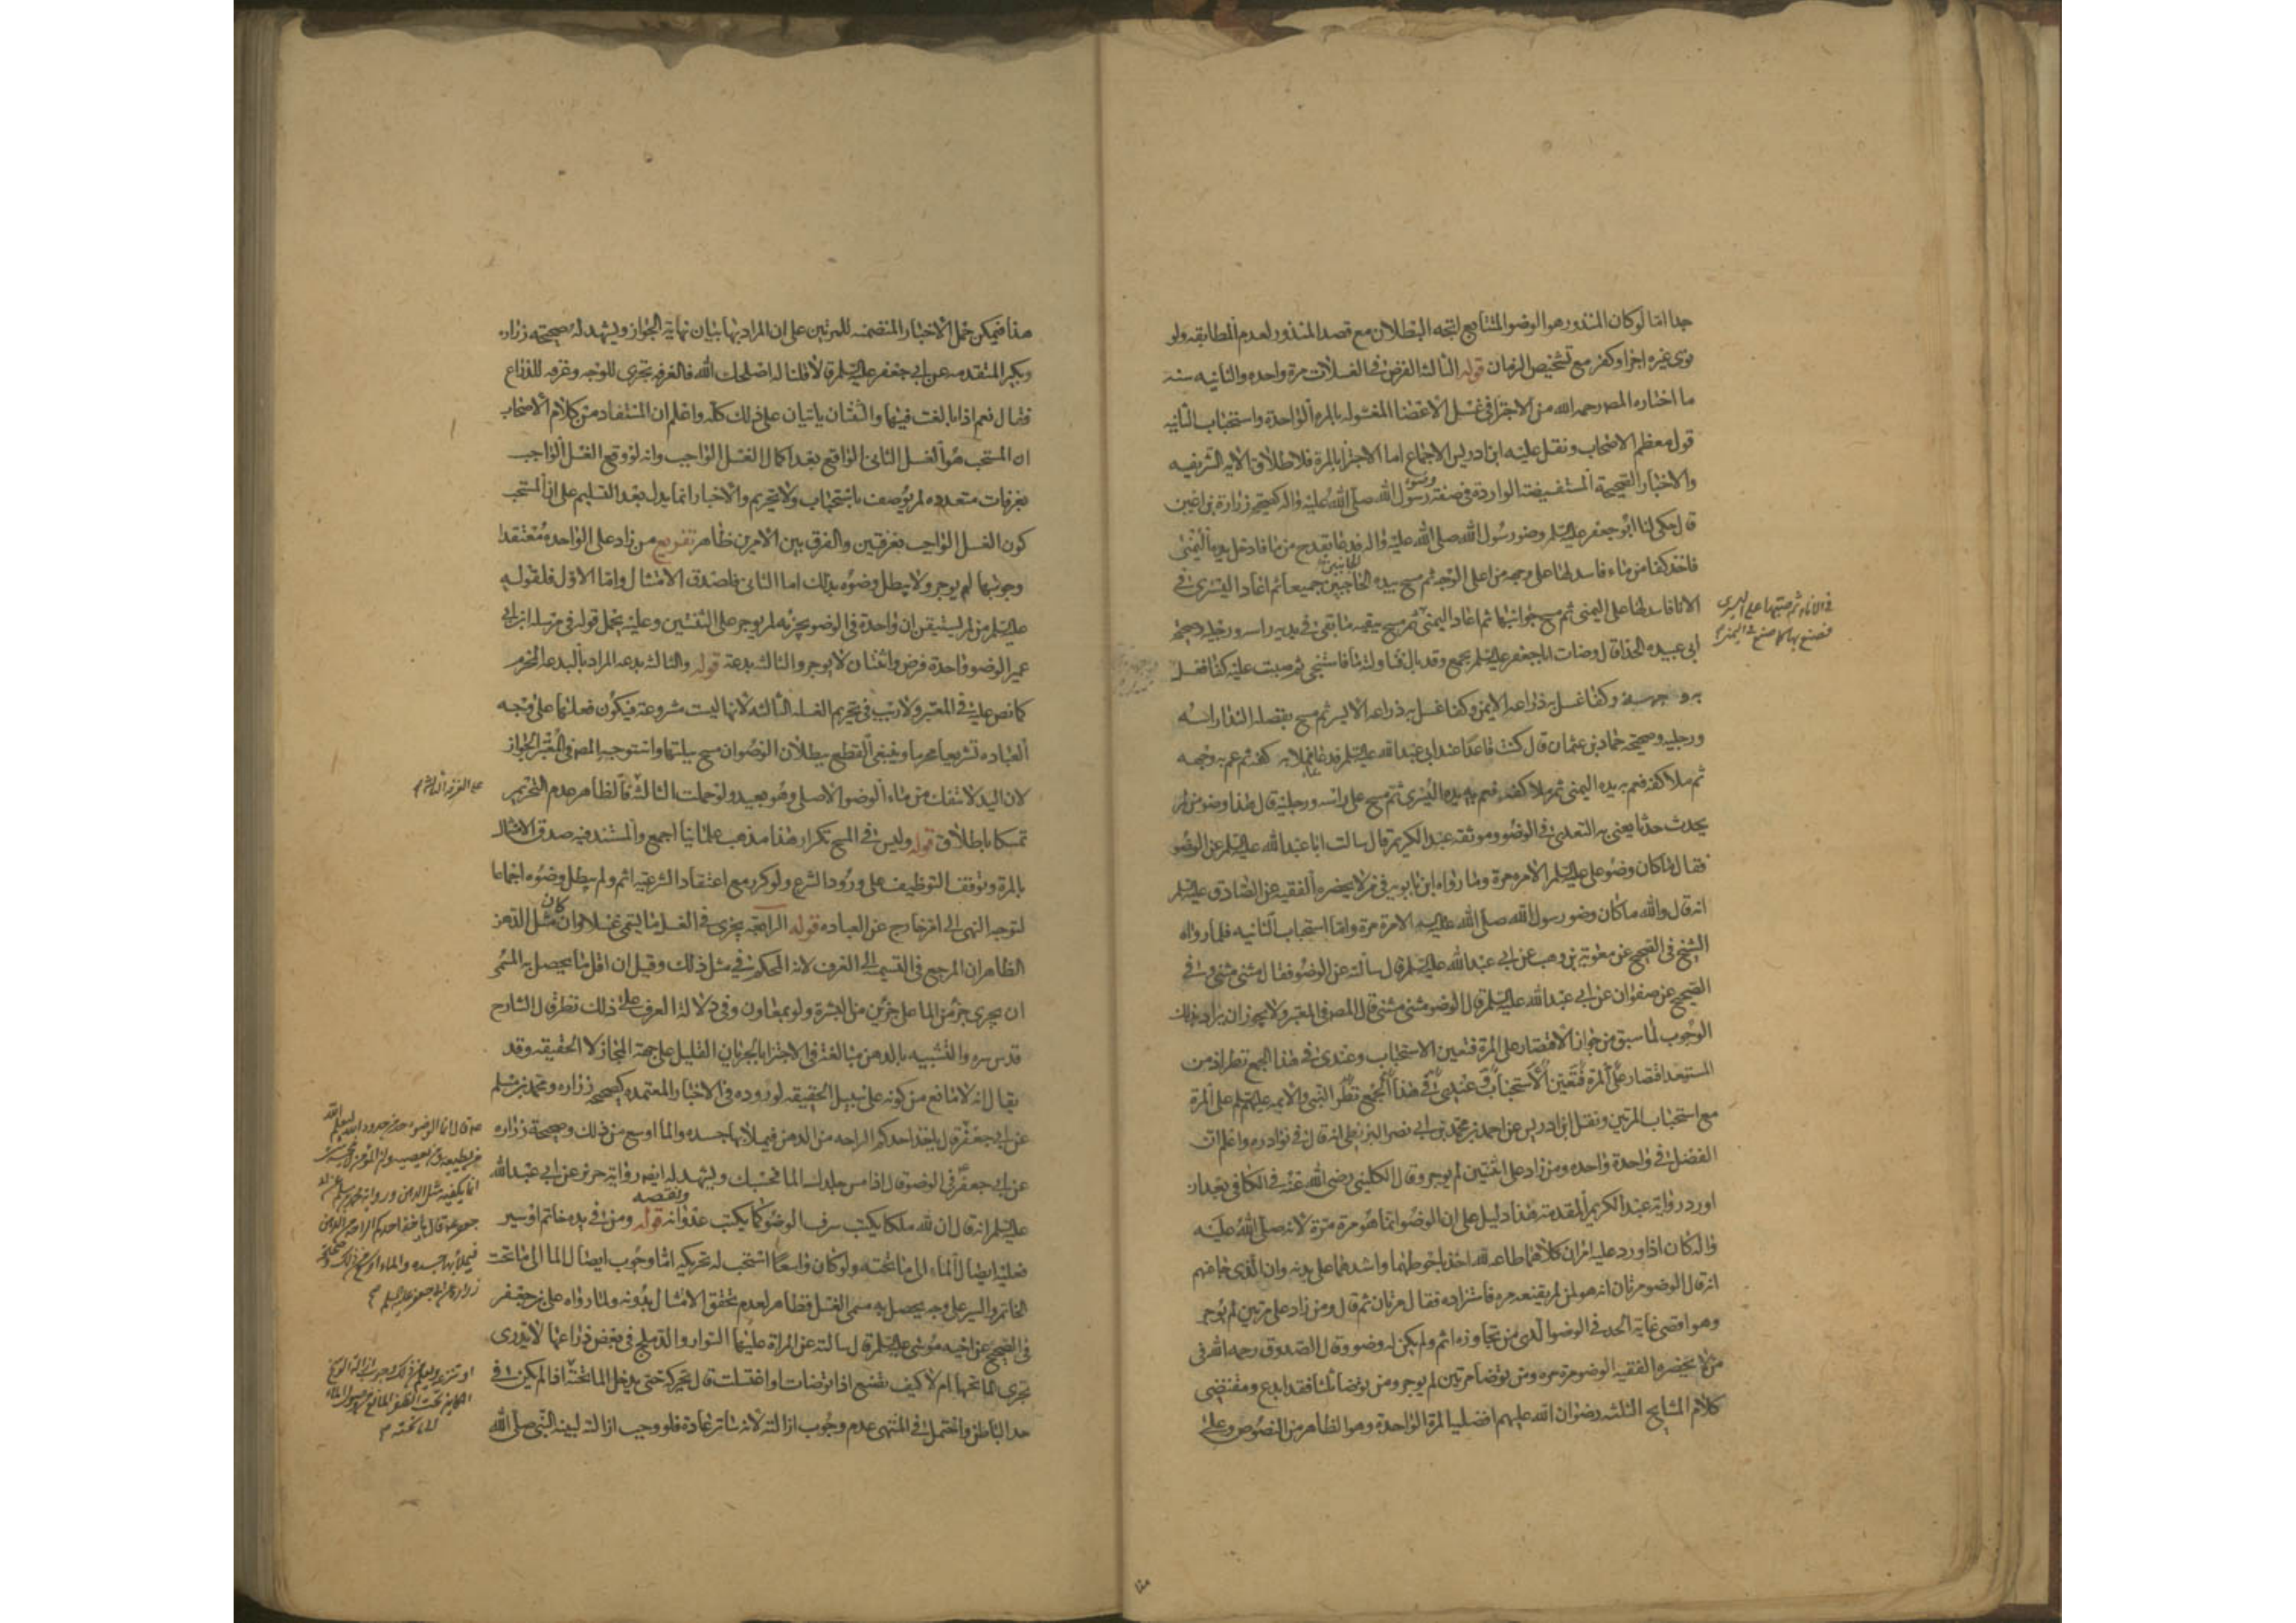 جدا امّا لو كان المنذور هو الوضو المتتابع اتجه البطلان مع قصد المنذور لعدم المطابقه ولو
نوى غيره اجزا وكفر مع تشخيص الزمان قوله الثالث الفرض فى الغسلات مرة واحده والثانيه سنه
ما اختاره المص رحمه الله من الاجتزا فى غسل الاعضا المغسوله بالمره الواحدة واستحباب الثانيه
قول معظم الاصحاب ونقل عليه ابن ادريس الاجماع اما الاجتزا بالمرة فلاطلاق الايه الشريفه
والاخبار الصحيحة المستفيضة الواردة فى صفة وضوء رسول الله صلّى الله عليه واله كصحيحه زرارة بن اعين
قال حكى لنا ابو جعفر عليه السلم وضوء رسول الله صلى الله عليه واله فدعا بقدح من ما فادخل يده اليمنى
فاخذ كفا من ماء فاسدلها على وجهه من اعلى الوجه ثم مسح بيده الجانبين جميعا ثم اعاد اليسرى فى
الانا فاسدلها على اليمنى ثم مسح جوانبها ثم اعاد اليمنى ثم مسح ببقيه ما بقى فى يديه راسه ورجليه وصحيحه
فى الاناء ثم صبها على اليسرى
فصنع بها كما صنع باليمنى
ابى عبيده الحذا قال وضات ابا جعفر عليه السلم بجمع وقد بال فناولته ماء فاستنجى ثم صببت عليه كفا فغسل
به وجهه وكفا غسل به ذراعه الايمن وكفا غسل به ذراعه الايسر ثم مسح بفضله الندا راسه
ورجليه وصحيحه حماد بن عثمان قال كنت قاعدا عند ابى عبدالله عليه السلم فدعا بماء فملا به كفه ثم عم به وجهه
ثم ملا كفه فعم به يده اليمنى ثم ملا كفه فعم به يده اليسرى ثم مسح على راسه ورجليه قال هذا وضو من لم
يحدث حدثا يعنى به التعدى فى الوضوء وموثقه عبد الكريم قال سالت ابا عبدالله عليه السلم عن الوضو
فقال ما كان وضو على عليه السلم الا مره مرة وما رواه ابن بابويه فى من لا يحضره الفقيه عن الصادق عليه السلم
انه قال والله ما كان وضو رسول الله صلّى الله عليه الا مرة مرة واما استحباب الثانيه فلما رواه
الشيخ فى الصحيح عن معويه بن وهب عن ابى عبدالله عليه السلم قال سالته عن الوضو فقال مثنى مثنى وفى
الصحيح عن صفوان عن ابى عبدالله عليه السلم قال الوضو مثنى مثنى قال المص فى المعتبر ولا يجوز ان يراد بذلك
الوجوب لما سبق من جواز الاقتصار على المرة فتعين الاستحباب وعندى فى هذا الجمع نظر اذ من
المستبعد اقتصار على المرة فتعين الاستحباب وعندى فى هذا الجمع نظر النبى والايمه عليهم السلم على المرة
مع استحباب المرتين ونقل ابن ادريس عن احمد بن محمد بن ابى نصر البزنطى انه قال فى نوادره واعلم ان
الفضل فى واحدة واحده ومن زاد على اثنتين لم يوجر وقال الكلينى رضى الله عنه فى الكافى بعد ان
اورد رواية عبد الكريم المقدمة هذا دليل على ان الوضو انما هو مرة مرة لانه صلّى الله عليه
واله كان اذا ورد عليه امران كلاهما طاعه لله اخذ باحوطهما واشدهما على بدنه وان الذى جا عنهم
انه قال الوضو مرتان انه هو لمن لم يقنعه مره فاستزاده فقال مرتان ثم قال ومن زاد على مرتين لم يوجر
وهو اقصى غاية الحد فى الوضو الذى من تجاوزه اثم ولم يكن له وضو وقال الصدوق رحمه الله فى
من لا يحضره الفقيه الوضو مرة مره ومن توضا مرتين لم يوجر ومن توضا ثلثا فقد ابدع ومقتضى
كلام المشايخ الثلثه رضوان الله عليهم افضليه المرة الواحدة وهو الظاهر من النصوص وعلى
هذا فيمكن حمل الاخبار المتضمنه للمرتين على ان المراد بها بيان نهاية الجواز ويشهد له صحيحه زراره
وبكير المتقدمه عن ابى جعفر عليه السلم قالا قلنا له اصلحك الله فالغرفه تجزى للوجه وغرفه للذراع
فقال نعم اذا بالغت فيها والثنتان ياتيان على ذلك كله واعلم ان المستفاد من كلام الاصحاب
ان المستحب هو الغسل الثانى الواقع بعد اكمال الغسل الواجب وانه لو وقع الغسل الواجب
بغرفات متعدده لم يوصف باستحباب ولا تحريم والاخبار انما يدل بعد التسليم على ان المستحب
كون الغسل الواجب بغرفتين والفرق بين الامرين ظاهر تفريع من زاد على الواحده معتقدا
وجوبها لم يوجر ولا يبطل وضوءه بذلك اما الثانى فلصدق الامتثال واما الاول فلقوله
عليه السلم من لم يستيقن ان واحدة فى الوضو يجزيه لم يوجر على الثنتين وعليه يحمل قوله فى مرسله ابن ابى
عمير الوضو واحدة فرض واثنتان لا يوجر والثالث بدعة قوله والثالث بدعه المراد بالبدعه المحرم
كما نص عليه فى المعتبر ولا ريب فى تحريم الغسله الثالثه لانها ليست مشروعة فيكون فعلها على وجه
العباده تشريعا محرما وينبغى القطع ببطلان الوضو ان مسح ببلتها واستوجه المص فى المعتبر الجواز
لان اليد لا تنفك من ماء الوضو الاصلى وهو بعيد ولو حملت الثالثة فالظاهر عدم التحريم
على الغرفة الثالثه
تمسكا باطلاق قوله وليس فى المسح تكرار هذا مذهب علماينا اجمع والمستند فيه صدق الامتثال
بالمرة وتوقف التوظيف على ورود الشرع ولو كرر مع اعتقاد الشرعيه اثم ولم يبطل وضوءه اجماعا
لتوجه النهى الى امر خارج عن العباده قوله الرابعة يجزى فى الغسل ما يسمى غسلا وان كان مثل الدهن
الظاهر ان المرجع فى التسمية الى العرف لانه المحكم فى مثل ذلك وقيل ان اقل ما يحصل به المسمى
ان يجرى جزء من الما على جزئين من البشرة ولو بمعاون وفى دلالة العرف على ذلك نظر قال الشارح
قدس سره والتشبيه بالدهن مبالغة فى الاجتزا بالجريان القليل على جهة المجاز لا الحقيقه وقد
يقال انه لا مانع من كونه على سبيل الحقيقه لوروده فى الاخبار المعتمده كصحيحه زراره ومحمد بن مسلم
عن ابى جعفر قال ياخذ احدكم الراحه من الدهن فيملا بها جسده والما اوسع من ذلك وصحيحة زراره
عن ابى جعفر فى الوضو قال اذا مس جلدك الما فحسبك ويشهد له ايضا رواية حريز عن ابى عبدالله
عليه السلم انه قال ان لله ملكا يكتب سرف الوضو كما يكتب عدوانه قوله ومن فى يده خاتم او سير
فعليه ايصال الماء الى ما تحته ولو كان واسعا استحب له تحريكه اما وجوب ايصال الما الى ما تحت
الخاتم والسير على وجه يحصل به مسمى الغسل فظاهر لعدم تحقق الامتثال بدونه ولما رواه على بن جعفر
فى الصحيح عن اخيه موسى عليه السلم قال سالته عن المراة عليها السوار والدملج فى بعض ذراعها لا يدرى
تجرى الما تحتها ام لا كيف تصنع اذا توضات او اغتسلت قال تحركه حتى يدخل الما تحته اذا لم يكن فى
حد الباطن واحتمل فى المنتهى عدم وجوب ازالته لانه ساتر عادة فلو وجب ازالته لبينه النبى صلّى الله
قال انما الوضوء حد من حدود الله ليعلم الله
من يطيعه ومن يعصيه وان المؤمن لا ينجسه شى
انما يكفيه مثل الدهن ورواية محمد بن مسلم عن ابى
جعفر قال ياخذ احدكم الراحه من الدهن
فيملا بها جسده والماء اوسع من ذلك وصحيحة
زراره عن ابى جعفر عليه السلم